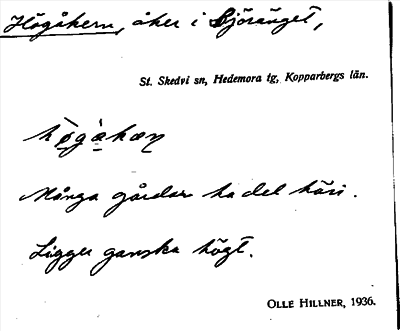 Högåkern, åker i Sjöränget,
St. Skedvi sn, Hedemora tg, Kopparbergs län.
Många gårdar ha del häri.
Ligger ganska högt.
OLLE HILLNER, 1936.